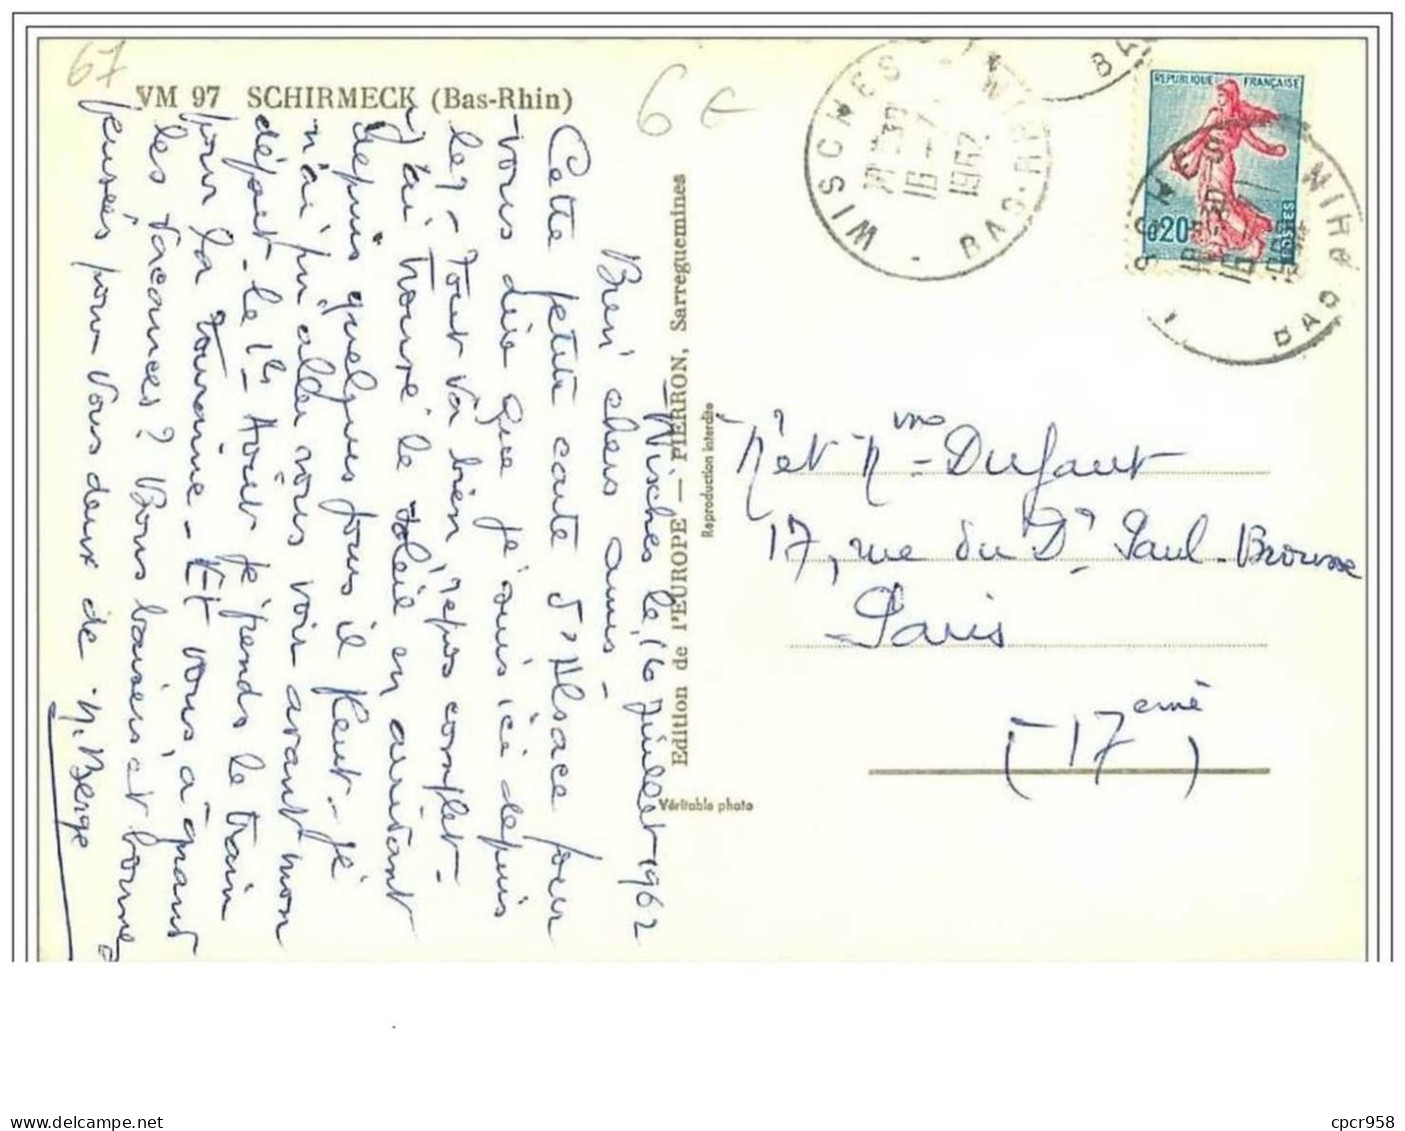 67
VM 97 SCHIRMECK (Bas-Rhin)
6 €
Wisches le 16 Juillet 1962
Bien chers amis -
Cette petite carte d'Alsace pour
vous dire que je suis ici depuis
le 7 - Tout va bien, repos complet -
J'ai trouvé le soleil en arrivant
depuis quelques jours il pleut - je
n'ai pu aller vous voir avant mon
départ - le 1er Août je prends le train
pour la Touraine - Et vous, à quand
les vacances? Bons baisers et bonnes
pensées pour vous deux de
Berge
Edition de l'EUROPE — PIERRON, Sarreguemines
Reproduction interdite
Véritable photo
WISCHES
BAS-RHIN
16-7
1962
REPUBLIQUE FRANÇAISE
0,20
POSTES
WISCHES
BAS RHIN
Mr et Mme Dufaut
17, rue du Dr Paul-Brousse
Paris
(17ème)
cpcr958